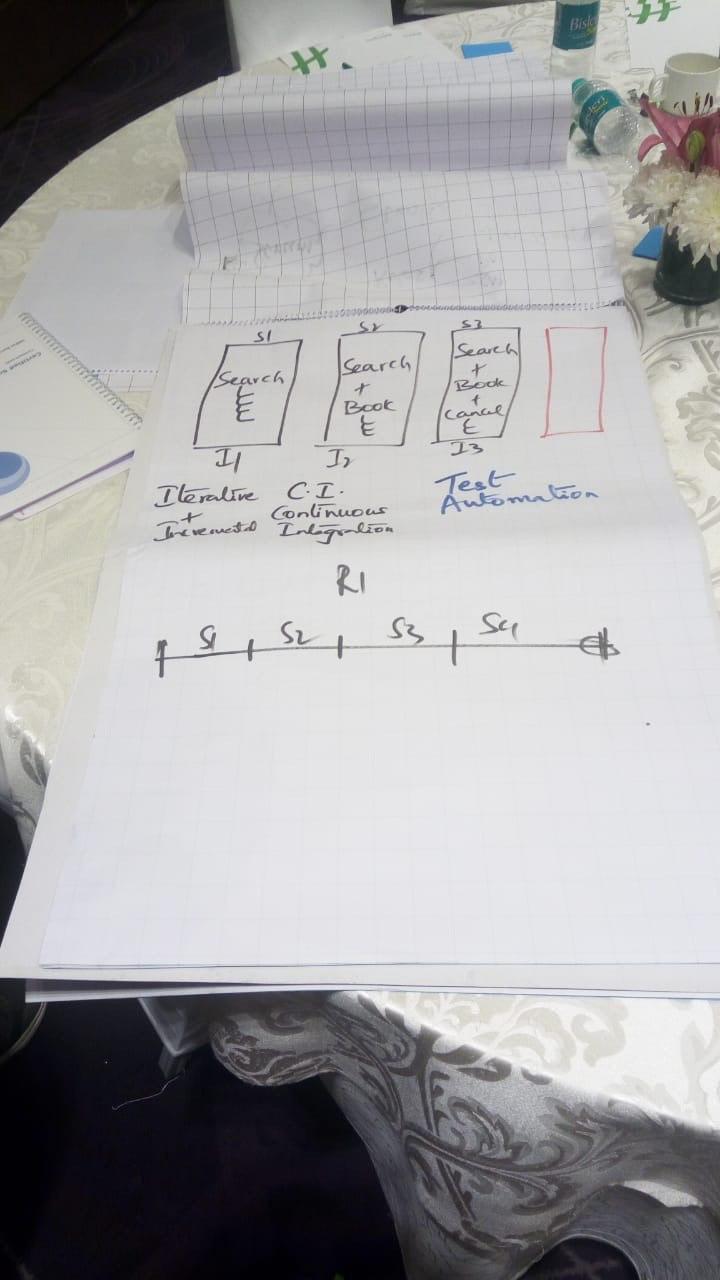 S1
Search
I1
S2
Search
+
Book
I2
S3
Search
+
Book
+
Cancel
I3
Iterative
+
Incremental
C.I.
Continuous
Integration
Test
Automation
R1
S1 S2 S3 S4